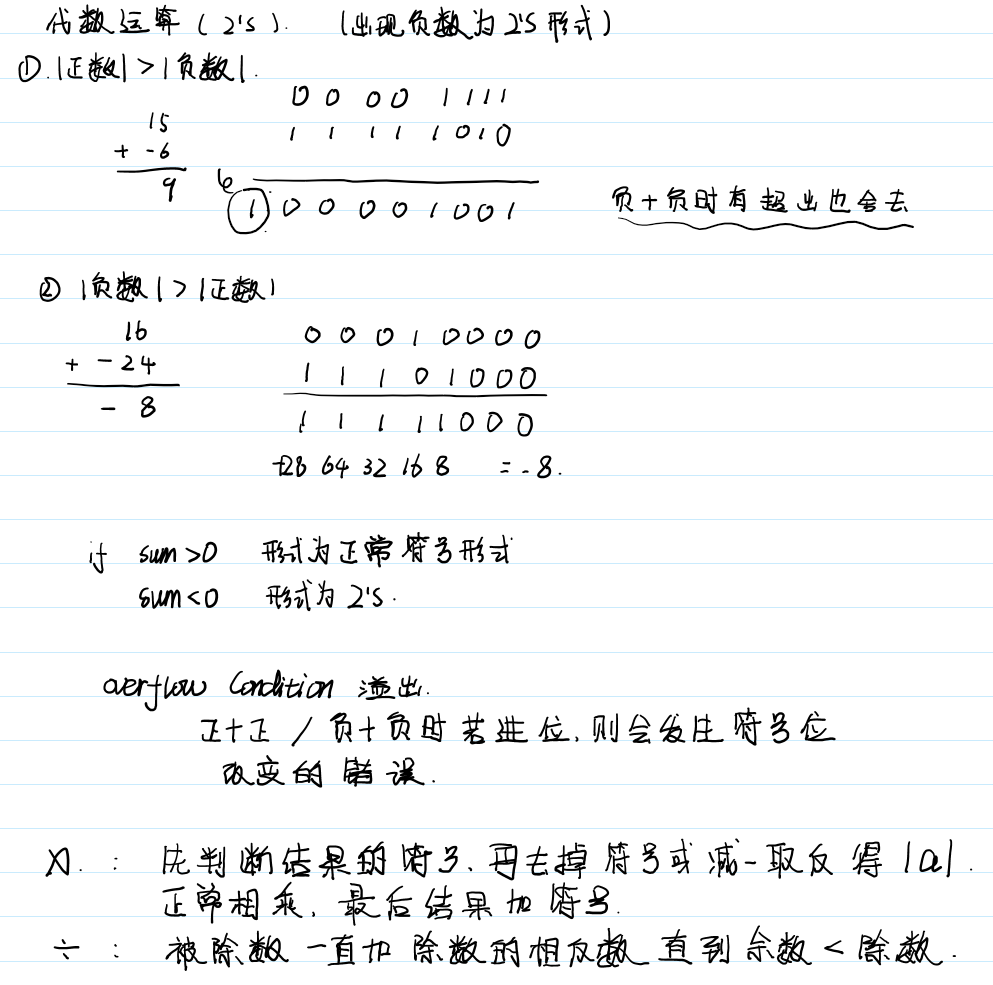 代数运算(2's). (出现负数为2's形式)
①.|正数|>|负数|.
0 0 0 0 1 1 1 1
15
1 1 1 1 1 0 1 0
+ -6
9
1 0 0 0 0 1 0 0 1
负+负时有超出也会去
② |负数|>|正数|
16
0 0 0 1 0 0 0 0
+ -24
1 1 1 0 1 0 0 0
- 8
1 1 1 1 1 0 0 0
-128 64 32 16 8 = -8.
if sum>0 形式为正常符号形式
sum<0 形式为 2's.
overflow Condition 溢出.
正+正 / 负+负时若进位,则会发生符号位
改变的错误.
: 先判断结果的符号、再去掉符号或减一取反得|a|.
正常相乘,最后结果加符号.
÷ : 被除数一直加除数的相反数直到余数<除数.